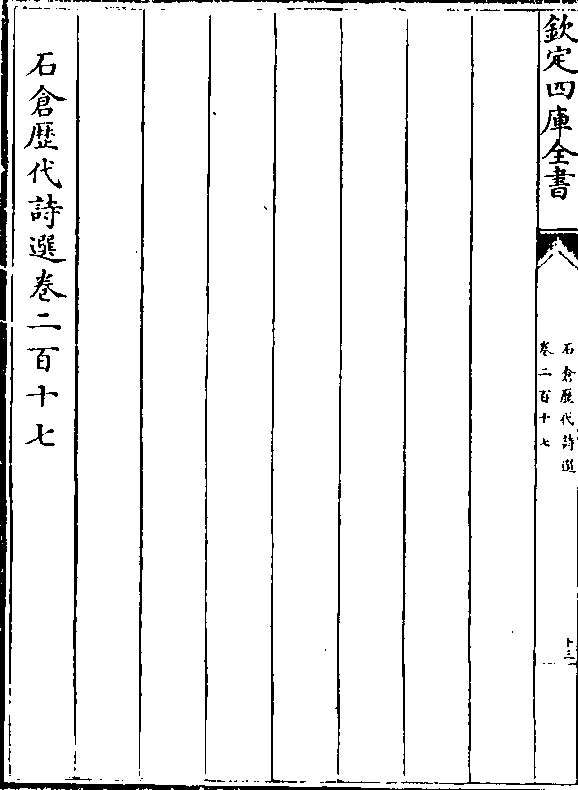 欽定四庫全書
石倉歷代詩選
卷二百十七
十三
石倉歷代詩選卷二百十七